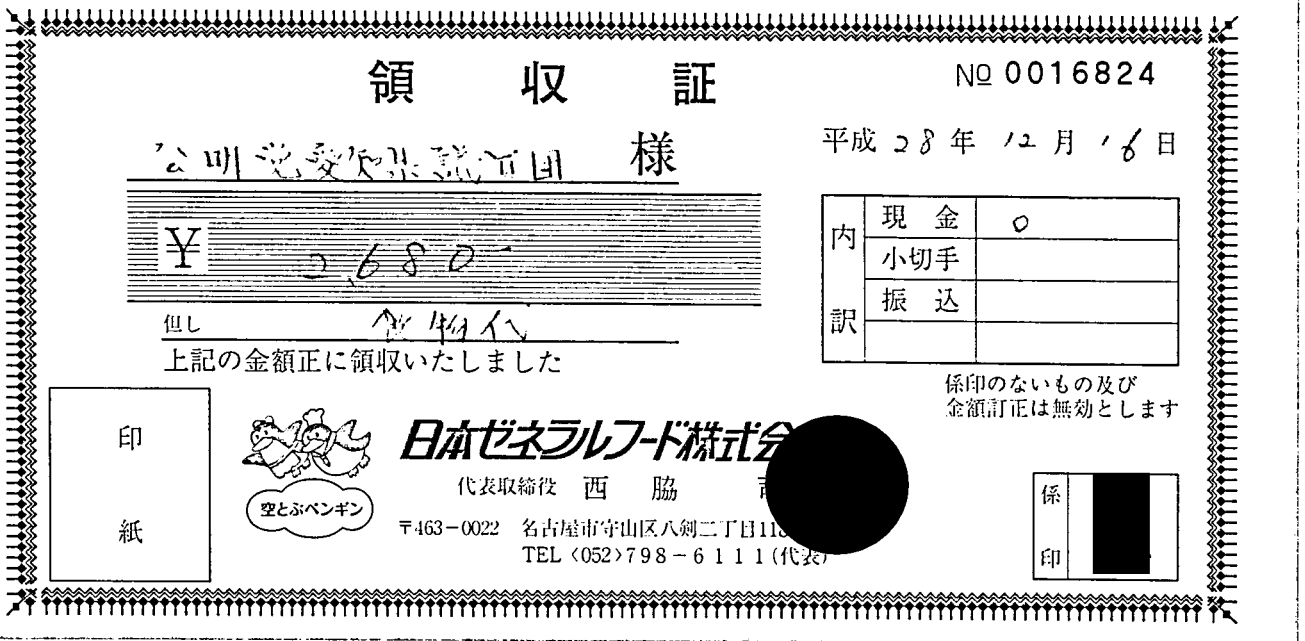 領収証
№ 0016824
平成 28年 12月 16日
公明党愛知県議員団 様
¥ 2,680-
但し 飲物代
上記の金額正に領収いたしました
内訳
現金 0
小切手
振込
係印のないもの及び
金額訂正は無効とします
印紙
空とぶペンギン
日本ゼネラルフード株式会
代表取締役 西脇
〒463-0022 名古屋市守山区八剣二丁目
TEL〈052〉798-6111(代表)
係印